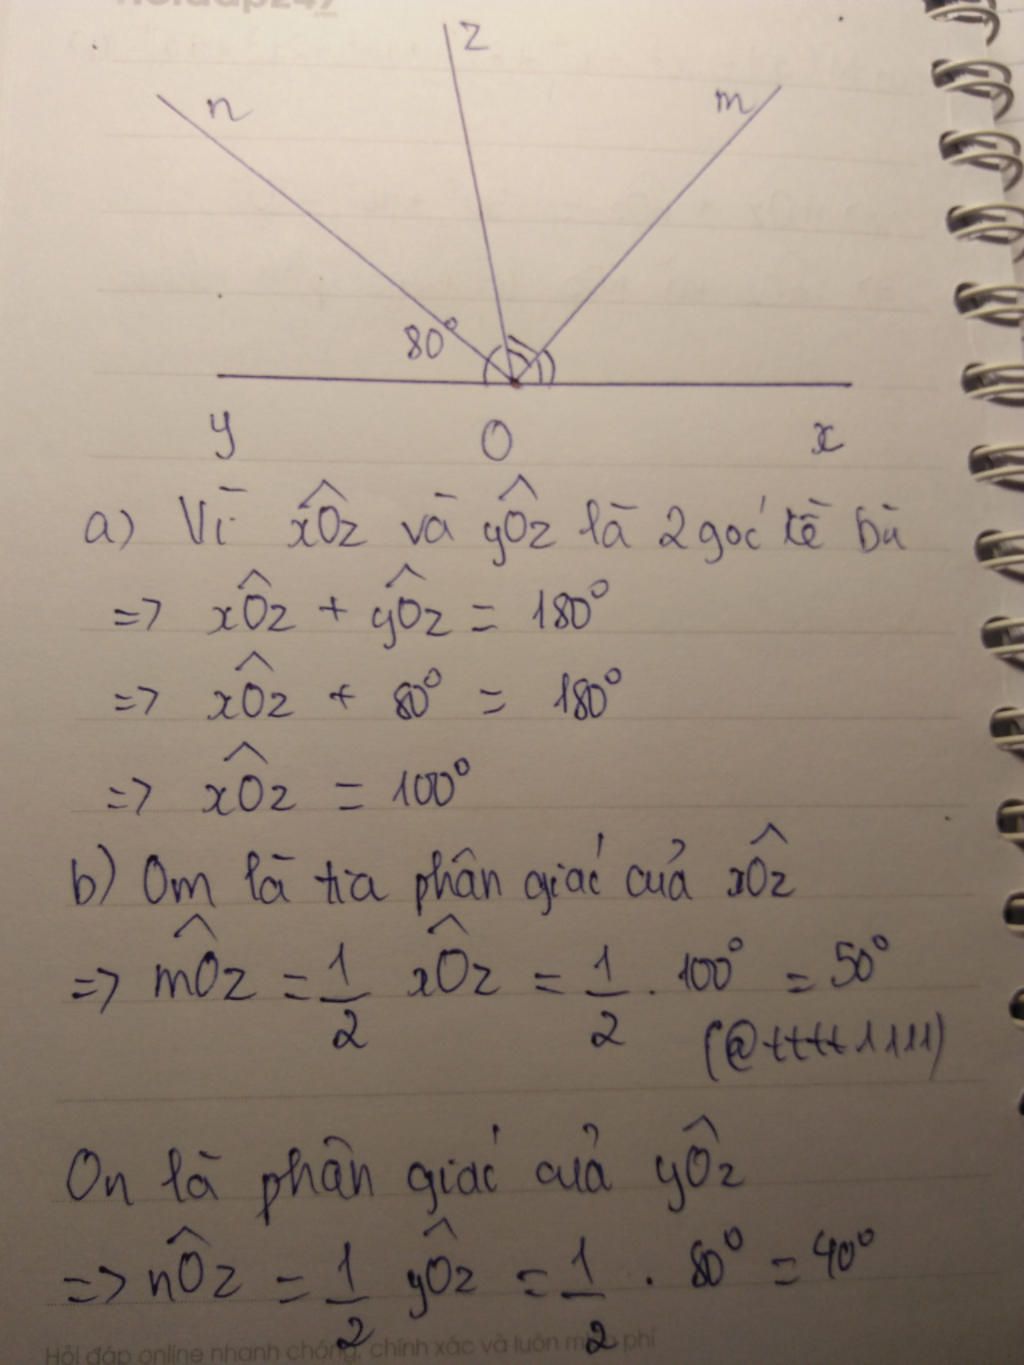 hoidap247
z
n
m
80°
y
O
x
a) Vì xÔz và yÔz là 2 góc kề bù
=> xÔz + yÔz = 180°
=> xÔz + 80° = 180°
=> xÔz = 100°
b) Om là tia phân giác của xÔz
=> mÔz = 1/2 xÔz = 1/2 . 100° = 50°
(@tttt1111)
On là phân giác của yÔz
=> nÔz = 1/2 yÔz = 1/2 . 80° = 40°
Hỏi đáp online nhanh chóng, chính xác và luôn miễn phí